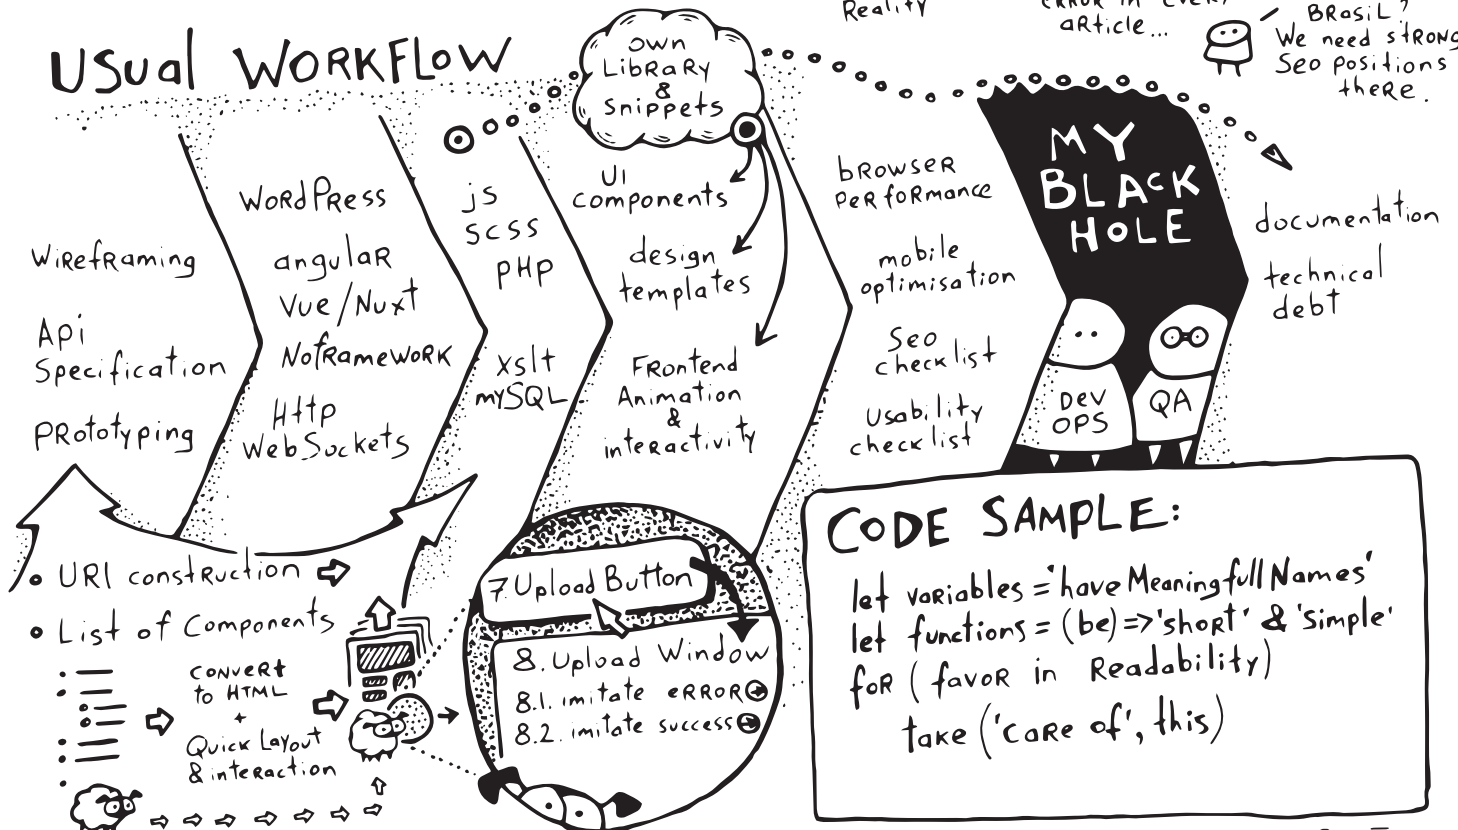 Reality
article...
BRASIL?
We need strong
Seo positions
there.
USUAL WORKFLOW
Own
Library
&
Snippets
Wireframing
Api
Specification
Prototyping
WordPress
angular
Vue/Nuxt
Noframework
Http
WebSockets
js
scss
PHP
xslt
mySQL
UI
components
design
templates
Frontend
Animation
&
interactivity
browser
performance
mobile
optimisation
Seo
checklist
Usability
checklist
MY
BLACK
HOLE
DEV
OPS
QA
documentation
technical
debt
URI construction
List of Components
Convert
to HTML
+
Quick Layout
& interaction
7 Upload Button
8. Upload Window
8.1. imitate error
8.2. imitate success
CODE SAMPLE:
let variables = 'have MeaningfullNames'
let functions = (be) => 'short' & 'simple'
for (favor in Readability)
take ('care of', this)